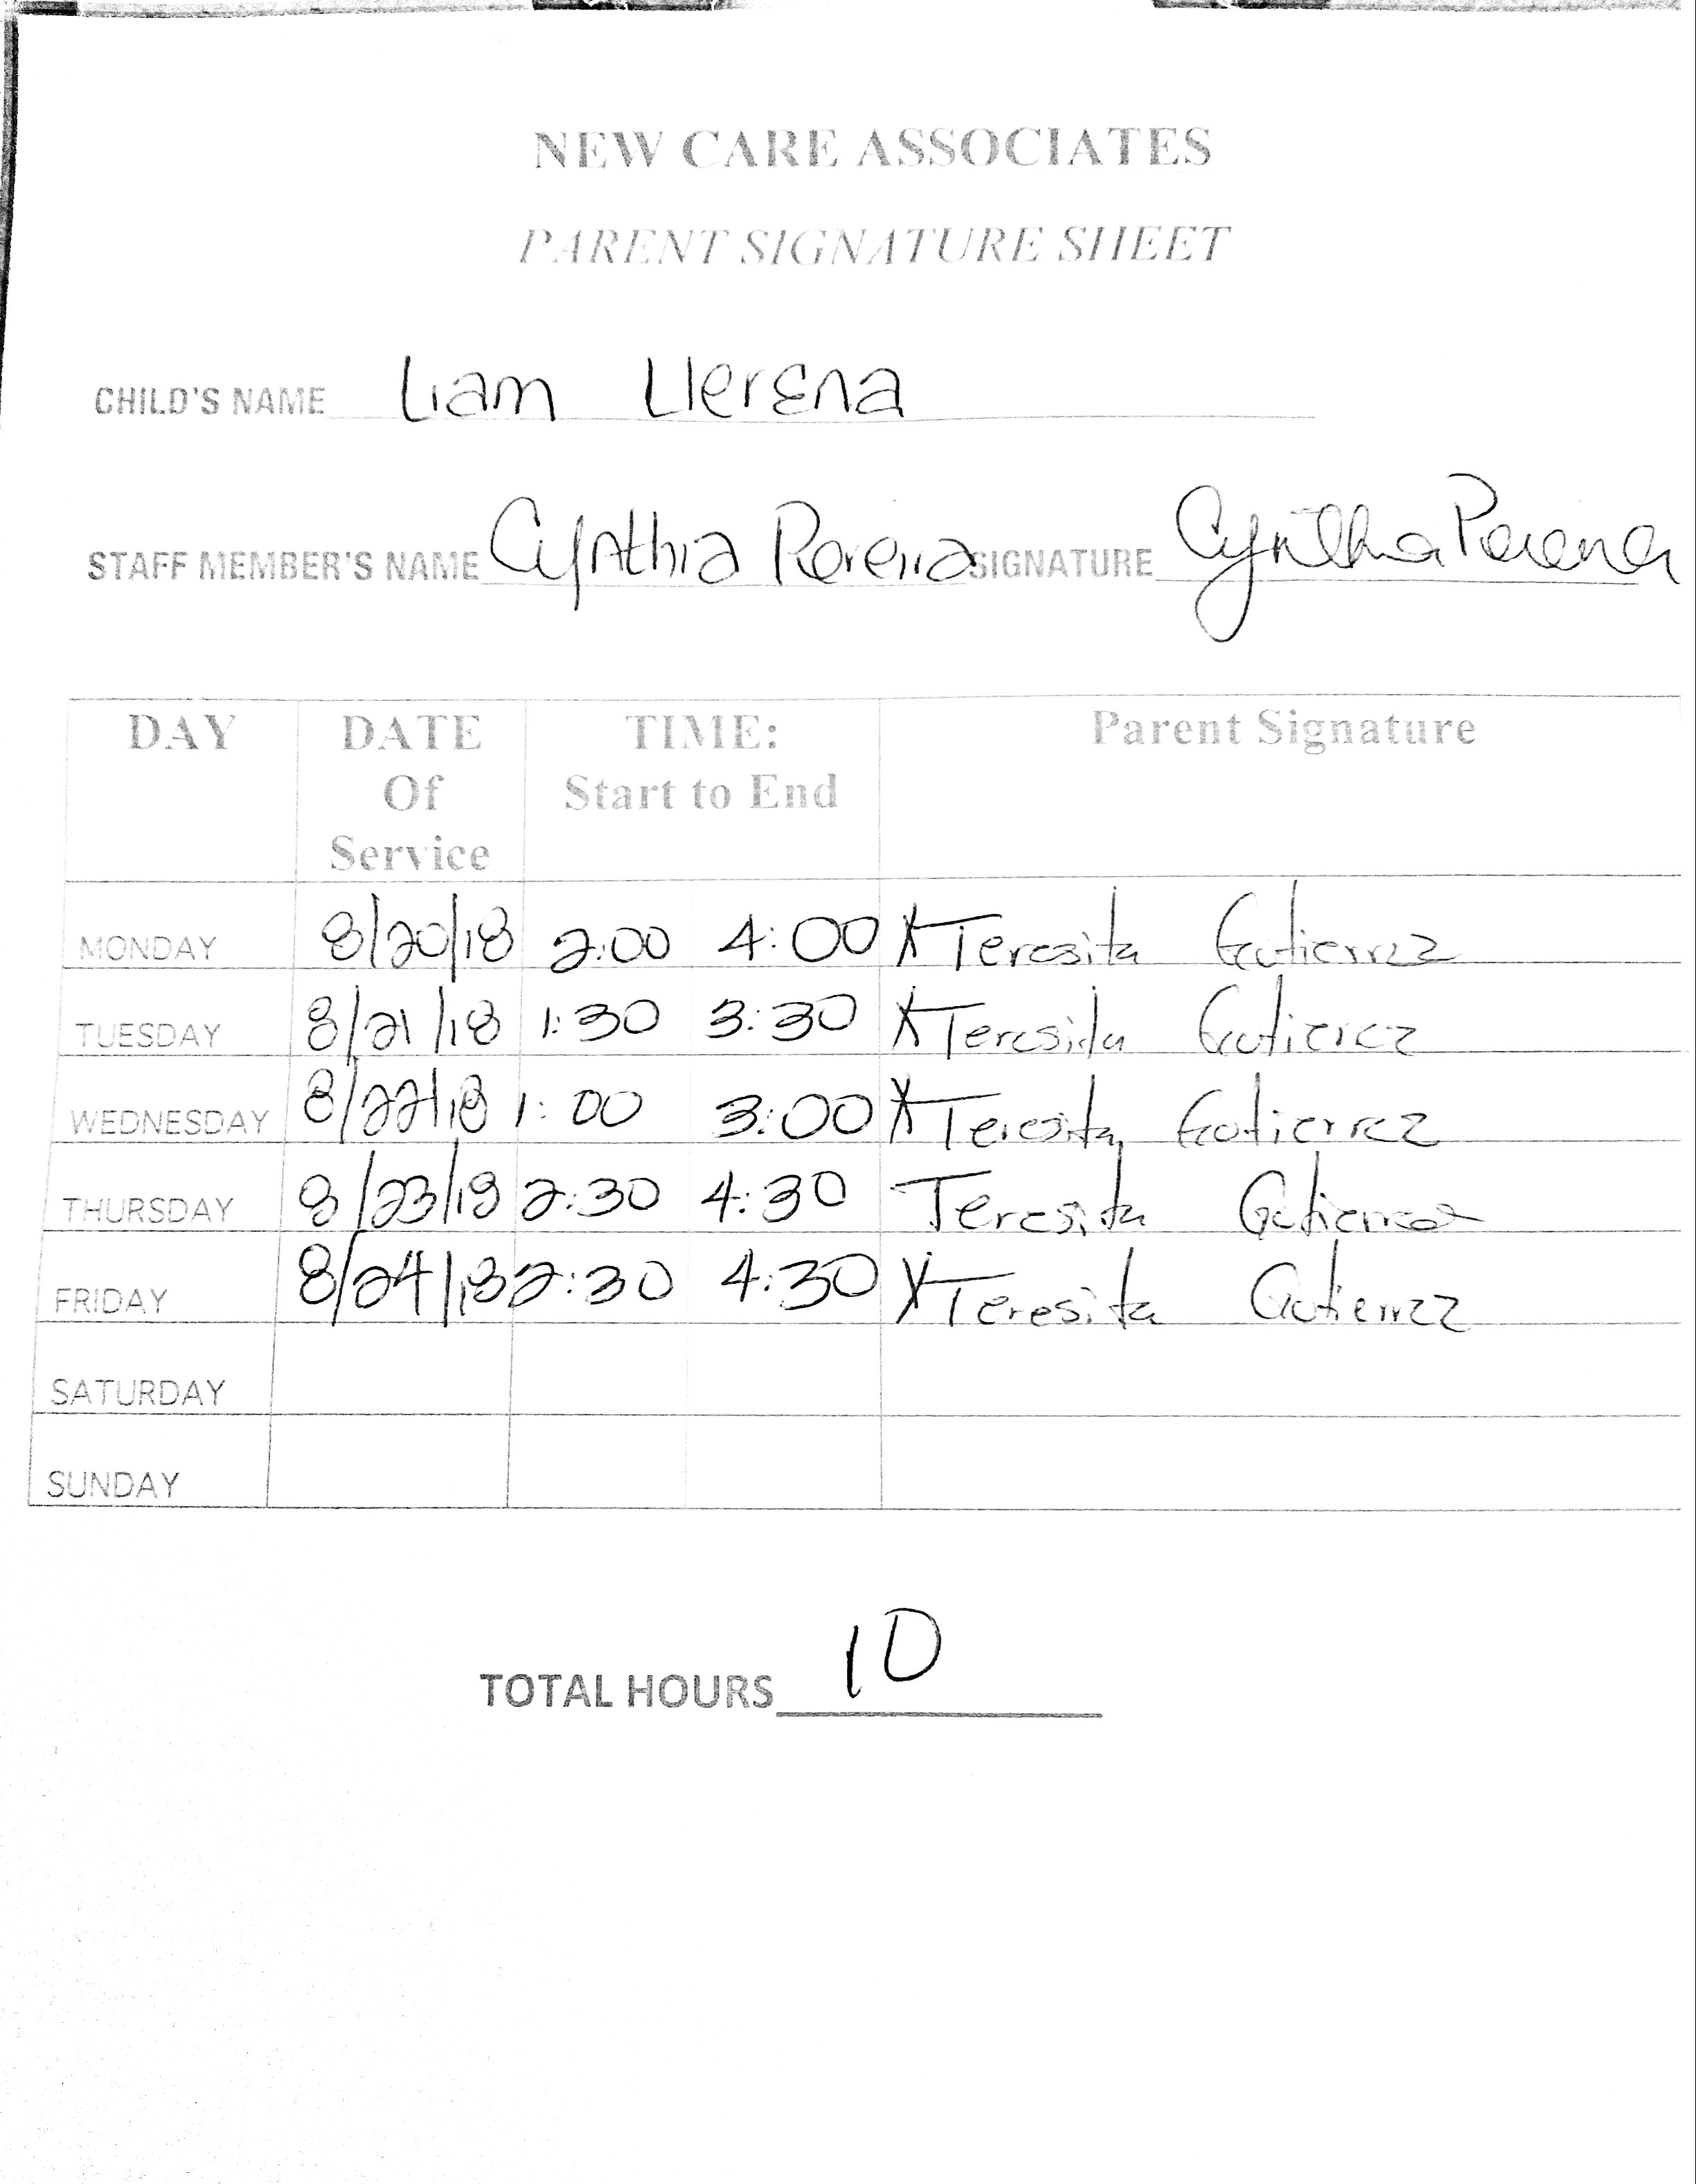 NEW CARE ASSOCIATES
PARENT SIGNATURE SHEET
CHILD'S NAME Liam Llerena
STAFF MEMBER'S NAME Cynthia Pereira SIGNATURE Cynthia Pereira
DAY DATE Of Service TIME: Start to End Parent Signature
MONDAY 8/20/18 2:00 4:00 X Teresita Gutierrez
TUESDAY 8/21/18 1:30 3:30 X Teresita Gutierrez
WEDNESDAY 8/22/18 1:00 3:00 X Teresita Gutierrez
THURSDAY 8/23/18 2:30 4:30 Teresita Gutierrez
FRIDAY 8/24/18 2:30 4:30 X Teresita Gutierrez
SATURDAY
SUNDAY
TOTAL HOURS 10